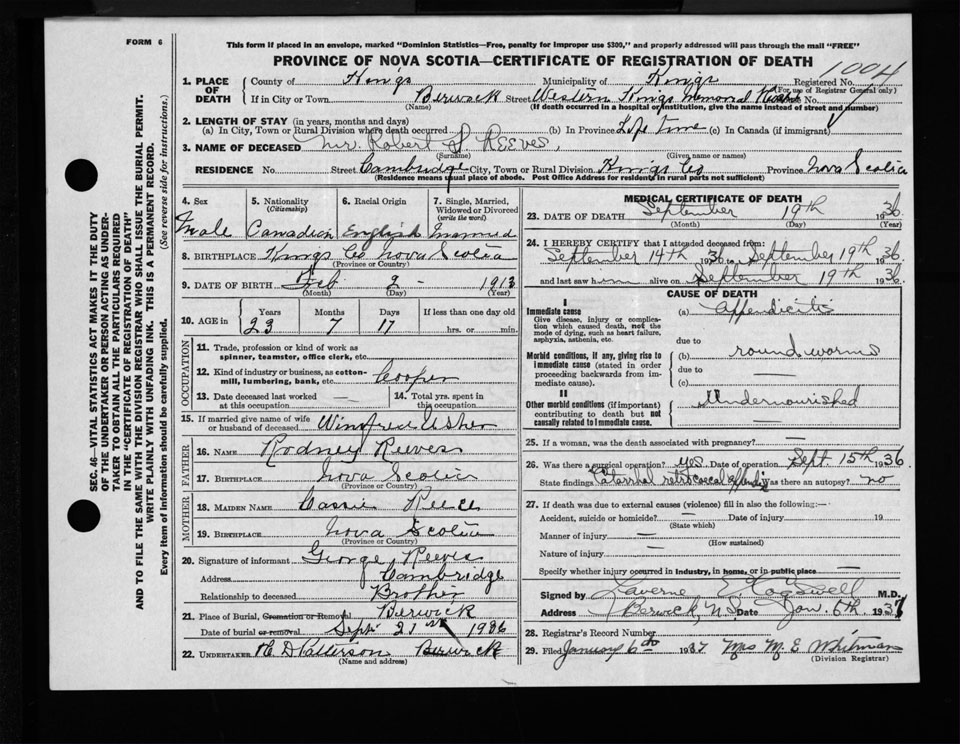 FORM 6
This form if placed in an envelope, marked "Dominion Statistics—Free, penalty for improper use $300," and properly addressed will pass through the mail "FREE"
PROVINCE OF NOVA SCOTIA—CERTIFICATE OF REGISTRATION OF DEATH
1004
1. PLACE OF DEATH
County of Kings Municipality of Kings Registered No.
(For use of Registrar General only)
If in City or Town Berwick Street Western Kings Memorial House No.
(Name) (If death occurred in a hospital or institution, give the name instead of street and number)
2. LENGTH OF STAY (in years, months and days)
(a) In City, Town or Rural Division where death occurred (b) In Province Life time (c) In Canada (if immigrant)
3. NAME OF DECEASED Mr. Robert S. REEVES,
(Surname) (Given name or names)
RESIDENCE No. Street Cambridge City, Town or Rural Division Kings Co Province Nova Scotia
(Residence means usual place of abode. Post Office Address for residents in rural parts not sufficient)
4. Sex 5. Nationality (Citizenship) 6. Racial Origin 7. Single, Married, Widowed or Divorced (write the word)
Male Canadian English Married
8. BIRTHPLACE Kings Co Nova Scotia
(Province or Country)
9. DATE OF BIRTH Feb 2 - 1913
(Month) (Day) (Year)
10. AGE in Years Months Days If less than one day old
23 7 17 hrs. or min.
OCCUPATION
11. Trade, profession or kind of work as spinner, teamster, office clerk, etc.
12. Kind of industry or business, as cotton-mill, lumbering, bank, etc. Cooper
13. Date deceased last worked at this occupation — 14. Total yrs. spent in this occupation
15. If married give name of wife or husband of deceased Winifred Usher
FATHER
16. NAME Rodney Reeves
17. BIRTHPLACE Nova Scotia
(Province or Country)
MOTHER
18. MAIDEN NAME Cassie Reece
19. BIRTHPLACE Nova Scotia
(Province or Country)
20. Signature of informant George Reeves
Address Cambridge
Relationship to deceased Brother
21. Place of Burial, Cremation or Removal Berwick
Date of burial or removal Sept 21st 1936
22. UNDERTAKER H. D Patterson Berwick
(Name and address)
MEDICAL CERTIFICATE OF DEATH
23. DATE OF DEATH September 19th 1936
(Month) (Day) (Year)
24. I HEREBY CERTIFY that I attended deceased from:
September 14th 1936 to September 19th 1936
and last saw him alive on September 19th 1936
CAUSE OF DEATH
I
Immediate cause (a) appendicitis
Give disease, injury or complication which caused death, not the mode of dying, such as heart failure, asphyxia, asthenia, etc.
due to
Morbid conditions, if any, giving rise to immediate cause (stated in order proceeding backwards from immediate cause).
(b) round worms
due to —
(c) —
II
Other morbid conditions (if important) contributing to death but not causally related to immediate cause.
Undernourished
25. If a woman, was the death associated with pregnancy? —
26. Was there a surgical operation? yes Date of operation Sept. 15th 1936
State findings Catarrhal retrocaecal appendix Was there an autopsy? no
27. If death was due to external causes (violence) fill in also the following:—
Accident, suicide or homicide? — Date of injury 19
(State which)
Manner of injury —
(How sustained)
Nature of injury —
Specify whether injury occurred in industry, in home, or in public place —
Signed by Laverne E Cogswell M.D.
Address Berwick, N.S. Date Jan. 6th 1937
28. Registrar's Record Number
29. Filed January 6th 1937 Mrs M. E Whitman
(Division Registrar)
SEC. 46—VITAL STATISTICS ACT MAKES IT THE DUTY
OF THE UNDERTAKER OR PERSON ACTING AS UNDER-
TAKER TO OBTAIN ALL THE PARTICULARS REQUIRED
IN THE "CERTIFICATE OF REGISTRATION OF DEATH"
AND TO FILE THE SAME WITH THE DIVISION REGISTRAR WHO SHALL ISSUE THE BURIAL PERMIT.
WRITE PLAINLY WITH UNFADING INK. THIS IS A PERMANENT RECORD.
Every item of information should be carefully supplied. (See reverse side for instructions).